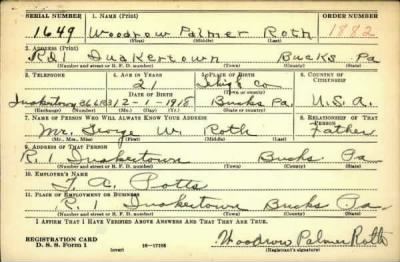 SERIAL NUMBER 1. NAME (Print) ORDER NUMBER
1649 Woodrow Palmer Roth 1882
(First) (Middle) (Last)
2. ADDRESS (Print)
RD 1 Quakertown Bucks Pa
(Number and street or R. F. D. number) (Town) (County) (State)
3. TELEPHONE 4. AGE IN YEARS 5. PLACE OF BIRTH 6. COUNTRY OF CITIZENSHIP
21 Lehigh Co
DATE OF BIRTH (Town or county)
Quakertown 12-1-1918 Bucks Pa. U.S.A.
(Exchange) (Number) (Mo.) (Day) (Yr.) (State or country)
7. NAME OF PERSON WHO WILL ALWAYS KNOW YOUR ADDRESS 8. RELATIONSHIP OF THAT PERSON
Mr. George W. Roth Father
(Mr., Mrs., Miss) (First) (Middle) (Last)
9. ADDRESS OF THAT PERSON
R. 1 Quakertown Bucks Pa
(Number and street or R. F. D. number) (Town) (County) (State)
10. EMPLOYER'S NAME
Potts
11. PLACE OF EMPLOYMENT OR BUSINESS
R. 1 Quakertown Bucks Pa
(Number and street or R. F. D. number) (Town) (County) (State)
I AFFIRM THAT I HAVE VERIFIED ABOVE ANSWERS AND THAT THEY ARE TRUE.
REGISTRATION CARD
D. S. S. Form 1 (over) Woodrow Palmer Roth
(Registrant's signature)